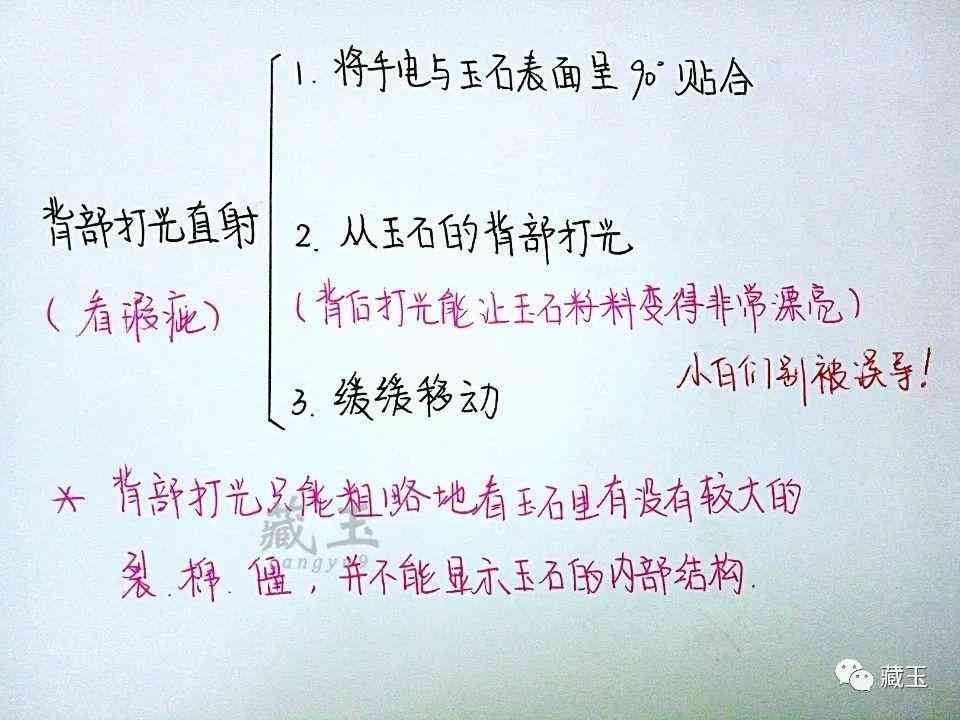 1. 将手电与玉石表面呈90°贴合
背部打光直射
2. 从玉石的背部打光
(看瑕疵)
(背后打光能让玉石籽料变得非常漂亮)
小白们别被误导!
3. 缓缓移动
* 背部打光只能粗略地看玉石里有没有较大的
裂.棉.僵,并不能显示玉石的内部结构.
藏玉
cangyu9
藏玉